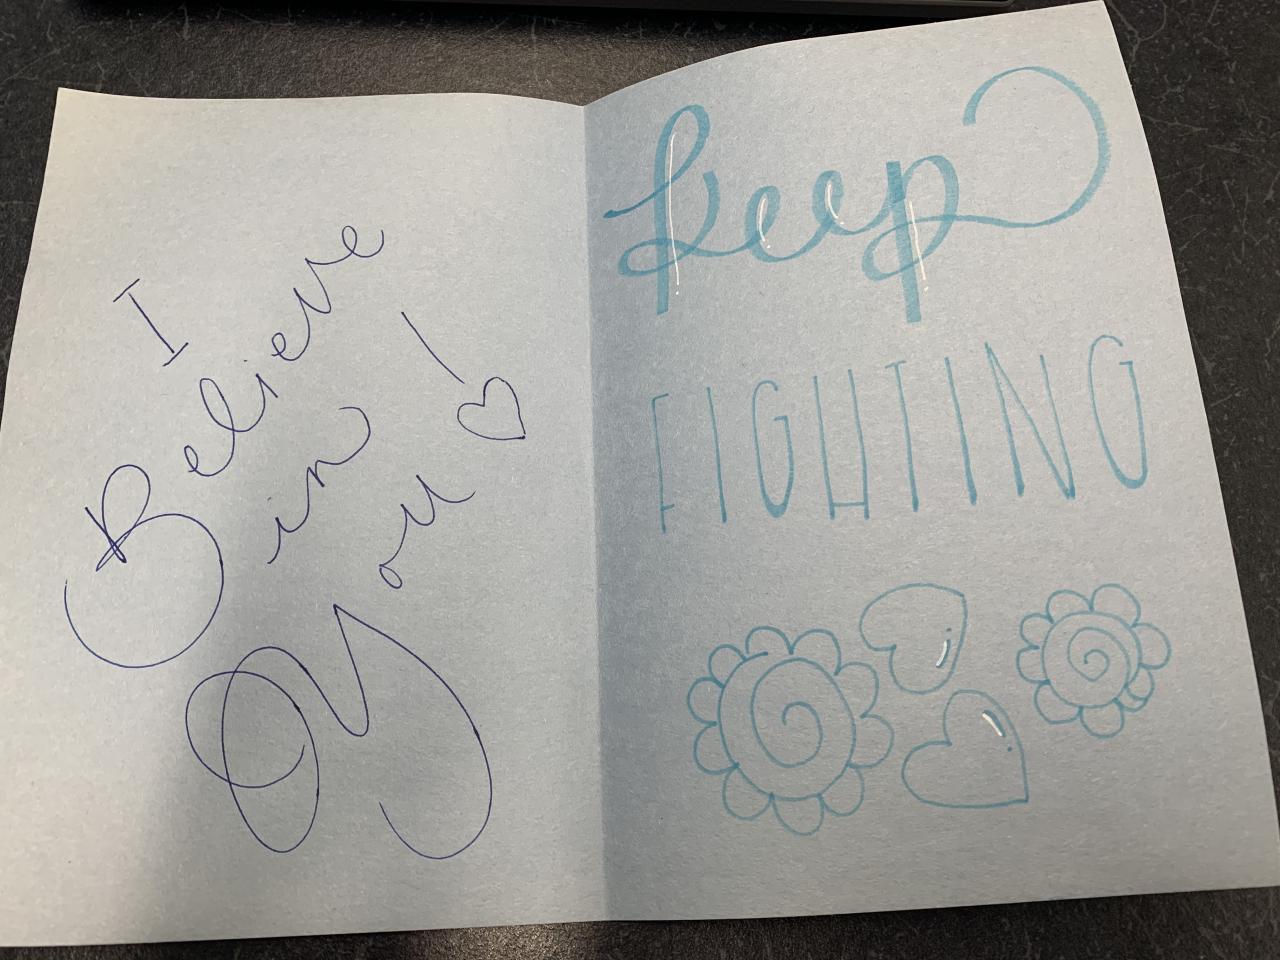 I
Believe
in
You!
keep
FIGHTING